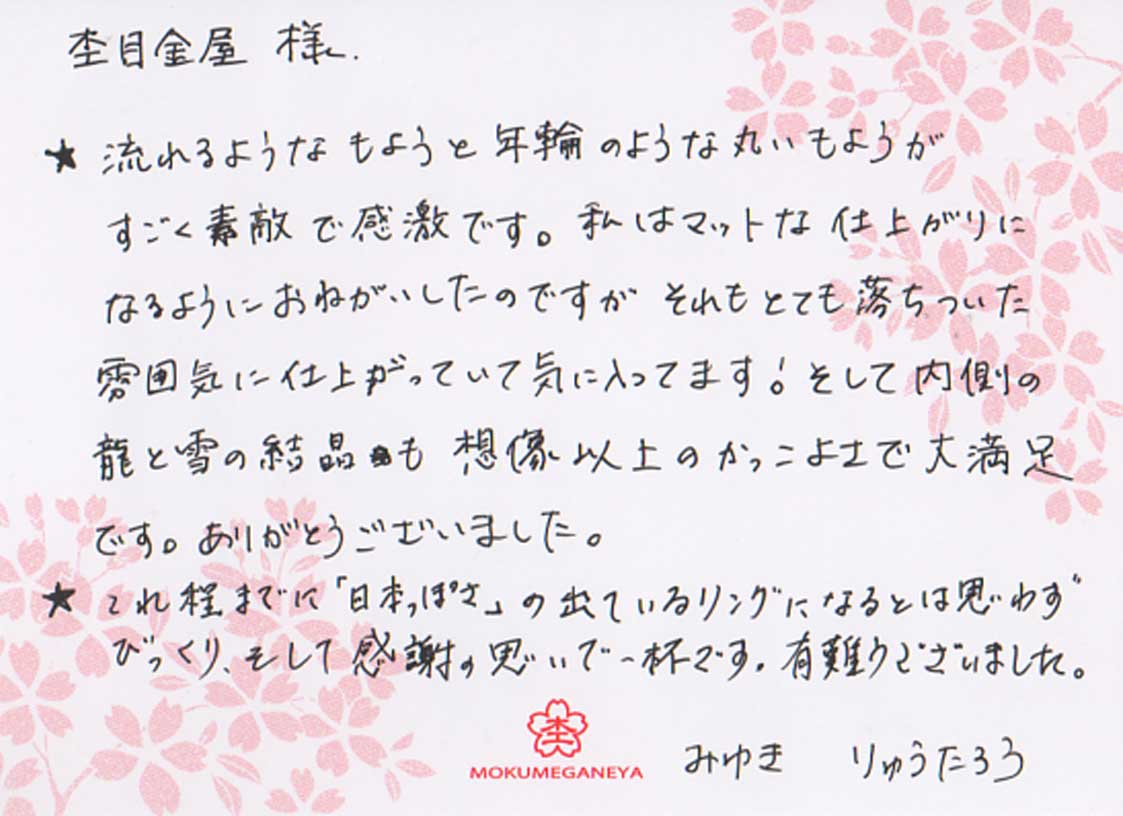 杢目金屋 様.
★ 流れるようなもようと年輪のような丸いもようが
すごく素敵で感激です。私はマットな仕上がりに
なるようにおねがいしたのですが それもとても落ちついた
雰囲気に仕上がっていて気に入ってます！そして内側の
龍と雪の結晶も 想像以上のかっこよさで大満足
です。ありがとうございました。
★ これ程までに「日本っぽさ」の出ているリングになるとは思わず
びっくり、そして感謝の思いで一杯です。有難うございました。
杢
MOKUMEGANEYA
みゆき りゅうたろう